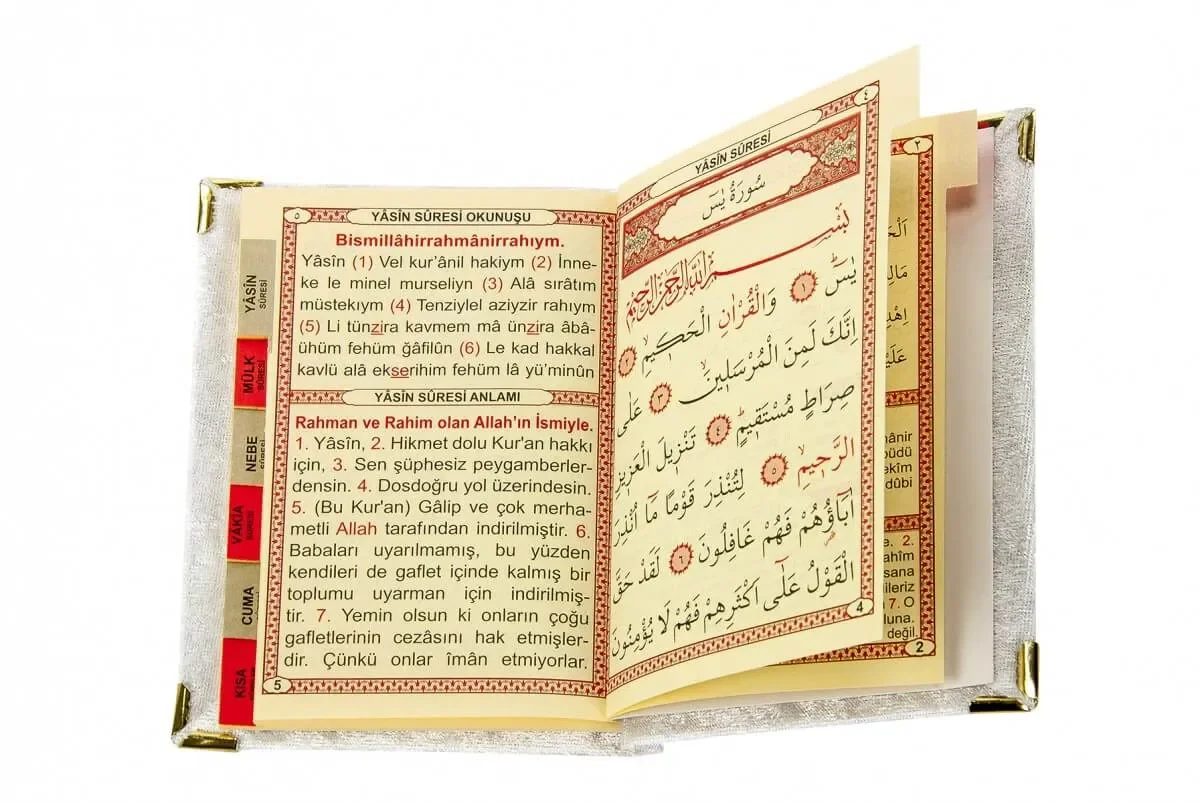 YÂSÎN
SÛRESİ
MÜLK
SÛRESİ
NEBE
SÛRESİ
VÂKIA
SÛRESİ
CUMA
KISA
٥
YÂSÎN SÛRESİ OKUNUŞU
Bismillâhirrahmânirrahıym.
Yâsîn (1) Vel kur’ânil hakiym (2) İnne-
ke le minel murseliyn (3) Alâ sırâtım
müstekıym (4) Tenziylel aziyzir rahıym
(5) Li tünzira kavmem mâ ünzira âbâ-
ühüm fehüm ğâfilûn (6) Le kad hakkal
kavlü alâ ekserihim fehüm lâ yü’minûn
YÂSÎN SÛRESİ ANLAMI
Rahman ve Rahim olan Allah’ın İsmiyle.
1. Yâsîn, 2. Hikmet dolu Kur'an hakkı
için, 3. Sen şüphesiz peygamberler-
densin. 4. Dosdoğru yol üzerindesin.
5. (Bu Kur'an) Gâlip ve çok merha-
metli Allah tarafından indirilmiştir. 6.
Babaları uyarılmamış, bu yüzden
kendileri de gaflet içinde kalmış bir
toplumu uyarman için indirilmiş-
tir. 7. Yemin olsun ki onların çoğu
gafletlerinin cezâsını hak etmişler-
dir. Çünkü onlar îmân etmiyorlar.
5
٤
YÂSÎN SÛRESİ
سُورَةُ يٰسٓ
بِسْــــمِ اللّٰهِ الرَّحْمٰنِ الرَّحِيمِ
يٰسٓ ۝١ وَالْقُرْاٰنِ الْحَكٖيمِ ۝٢
اِنَّكَ لَمِنَ الْمُرْسَلٖينَ ۝٣ عَلٰى
صِرَاطٍ مُسْتَقٖيمٍ ۝٤ تَنْزٖيلَ الْعَزٖيزِ
الرَّحٖيمِ ۝٥ لِتُنْذِرَ قَوْمًا مَٓا اُنْذِرَ
اٰبَٓاؤُهُمْ فَهُمْ غَافِلُونَ ۝٦ لَقَدْ حَقَّ
الْقَوْلُ عَلٰٓى اَكْثَرِهِمْ فَهُمْ لَا يُؤْمِنُونَ
4
٢
2.
7. O
değil.
2